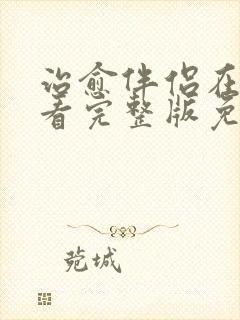 治愈伴侣在
看完整版免
菀城